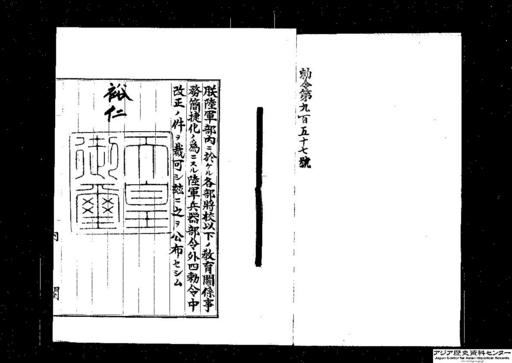 勅令第九百五十七號
朕陸軍部內ニ於ケル各部將校以下ノ敎育關係事
務簡捷化ノ爲ニスル陸軍兵器部令外四勅令中
改正ノ件ヲ裁可シ玆ニ之ヲ公布セシム
裕仁
天皇
御璽
內閣
アジア歴史資料センター
Japan Center for Asian Historical Records